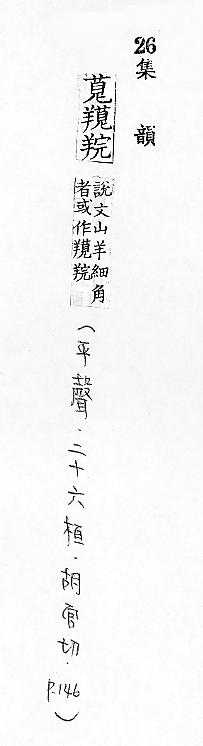 26集 韻
萈羦羱
說文山羊細角
者或作羦羱
(平聲．二十六桓．胡官切．P.146)